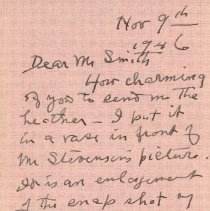 Nov 9th
1946
Dear Mr Smith
How charming
of you to send me the
heather – I put it
in a vase in front of
Mr Stevenson's picture.
It is an enlargement
of the snap shot of